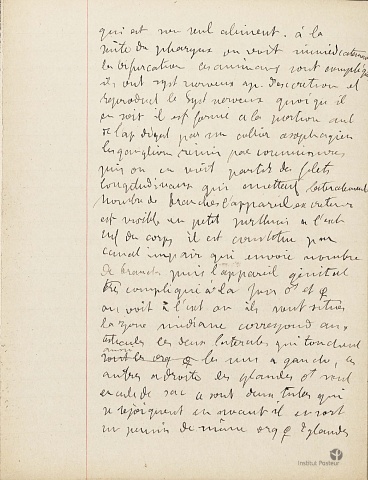 qui est son seul aliment. à la
suite du pharynx on voit immédiatement
la bifurcation ces animaux sont compliqués
ils ont syst nerveux ap. d'excrétion et
reproduct le syst nerveux quoi qu'il
en soit il est formé à la portion ant
de l'ap digest par un collier oesophagien
les ganglions réunis par commissures
puis on en voit partir des filets
longitudinaux qui émettent latéralement
nombre de branches l'appareil excréteur
est visible un petit pertuis à l'ext
inf du corps il est constitué par
canal impair qui envoie nombre
de branch puis l'appareil génital
très compliqué à la fois ♂ et ♀
on voit à l'ext où ils sont situés
la zone médiane correspond aux
testicules les deux latérales qui touchent
sont les org ♀ les uns à gauche, les
autres à droite les glandes ♂ sont
en cul de sac ce sont deux tubes qui
se rejoignent en avant il en sort
un pénis de même org ♀ 2 glandes
Institut Pasteur